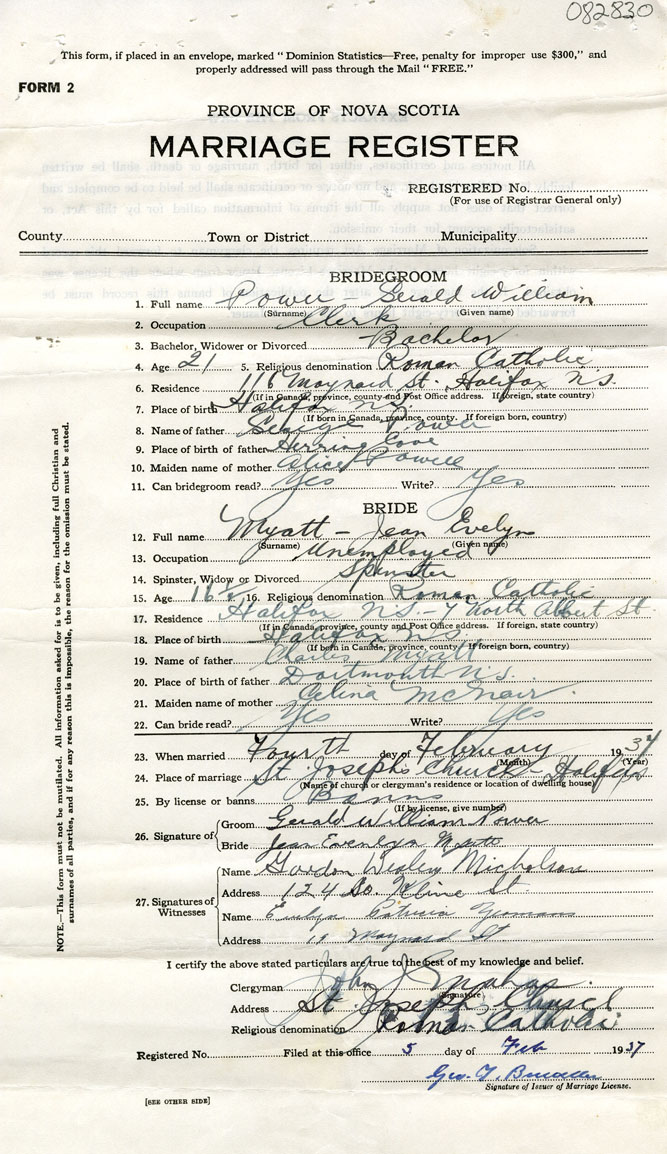 082830
This form, if placed in an envelope, marked " Dominion Statistics—Free, penalty for improper use $300," and
properly addressed will pass through the Mail " FREE."
FORM 2
PROVINCE OF NOVA SCOTIA
MARRIAGE REGISTER
REGISTERED No.
(For use of Registrar General only)
County Town or District Municipality
BRIDEGROOM
1. Full name Power Gerald William
(Surname) (Given name)
2. Occupation Clerk
3. Bachelor, Widower or Divorced Bachelor
4. Age 21 5. Religious denomination Roman Catholic
6. Residence 116 Maynard St. Halifax N.S.
(If in Canada, province, county and Post Office address. If foreign, state country)
7. Place of birth Halifax N.S.
(If born in Canada, province, county. If foreign born, country)
8. Name of father George Power
9. Place of birth of father Herring Cove
10. Maiden name of mother Alice Powell
11. Can bridegroom read? Yes Write? Yes
BRIDE
12. Full name Myatt – Jean Evelyn
(Surname) (Given name)
13. Occupation Unemployed
14. Spinster, Widow or Divorced Spinster
15. Age 16 16. Religious denomination Roman Catholic
17. Residence Halifax N.S. – 7 North Albert St.
(If in Canada, province, county and Post Office address. If foreign, state country)
18. Place of birth Halifax N.S.
(If born in Canada, province, county If foreign born, country)
19. Name of father Charles Myatt
20. Place of birth of father Dartmouth N.S.
21. Maiden name of mother Celina McNair
22. Can bride read? Yes Write? Yes
23. When married Fourth day of February 1937
(Month) (Year)
24. Place of marriage St Josephs Church – Halifax
(Name of church or clergyman's residence or location of dwelling house)
25. By license or banns Banns
(If by license, give number)
26. Signature of Groom Gerald William Power
Bride Jean Evenlyn Myatt
27. Signatures of Witnesses Name Gordon Wesley Nicholson
Address 124 So. Kline St.
Name Patricia Yeomans
Address Maynard St
I certify the above stated particulars are true to the best of my knowledge and belief.
Clergyman John J.
(Signature)
Address St. Joseph's Church
Religious denomination Roman Catholic
Registered No. Filed at this office 5 day of Feb 1937
Geo. T.
Signature of Issuer of Marriage License.
[SEE OTHER SIDE]
NOTE.—This form must not be mutilated. All information asked for is to be given, including full Christian and
surnames of all parties, and if for any reason this is impossible, the reason for the omission must be stated.